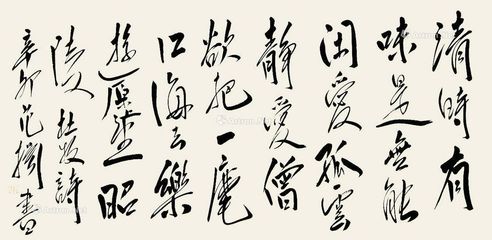 清時有
味是無能
閑愛孤雲
靜愛僧
欲把一麾
江海去樂
遊原上望昭
陵 杜牧詩
辛卯 范 書